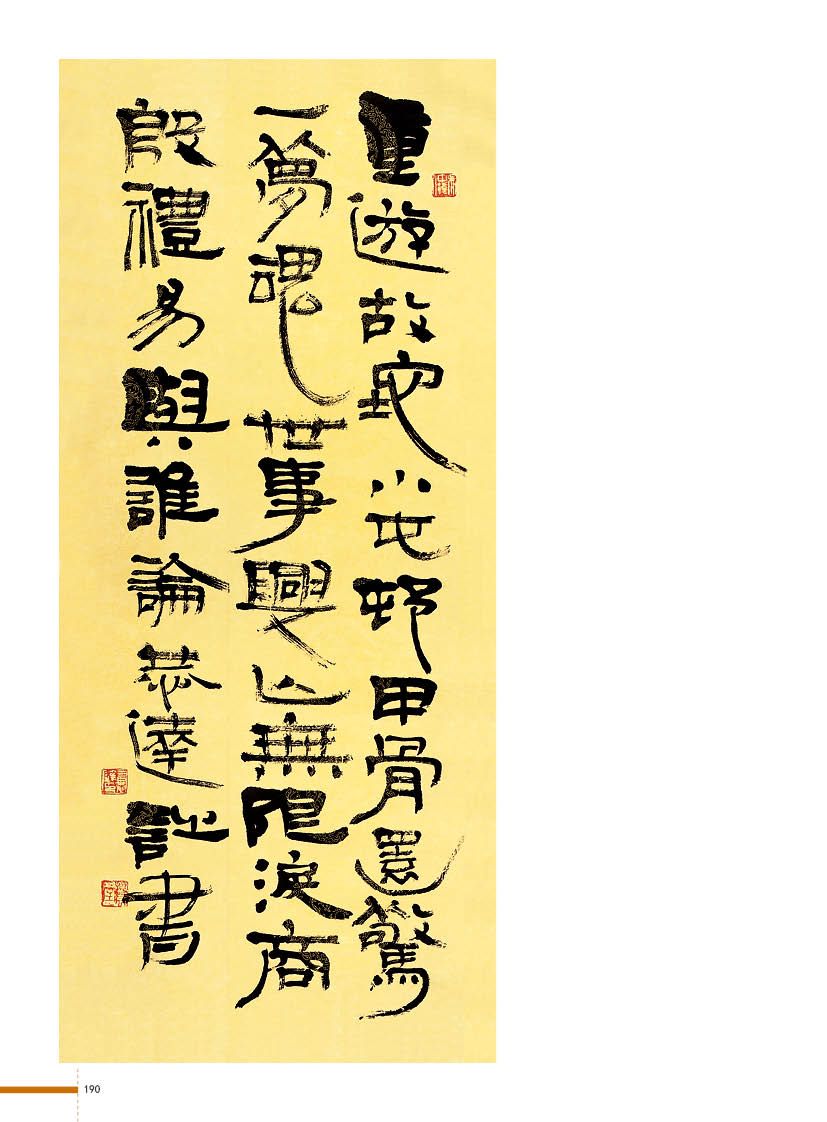 重遊故地小屯邨甲骨還驚
一夢魂世事興亡無限淚商
殷禮易與誰論恭達詩書
190